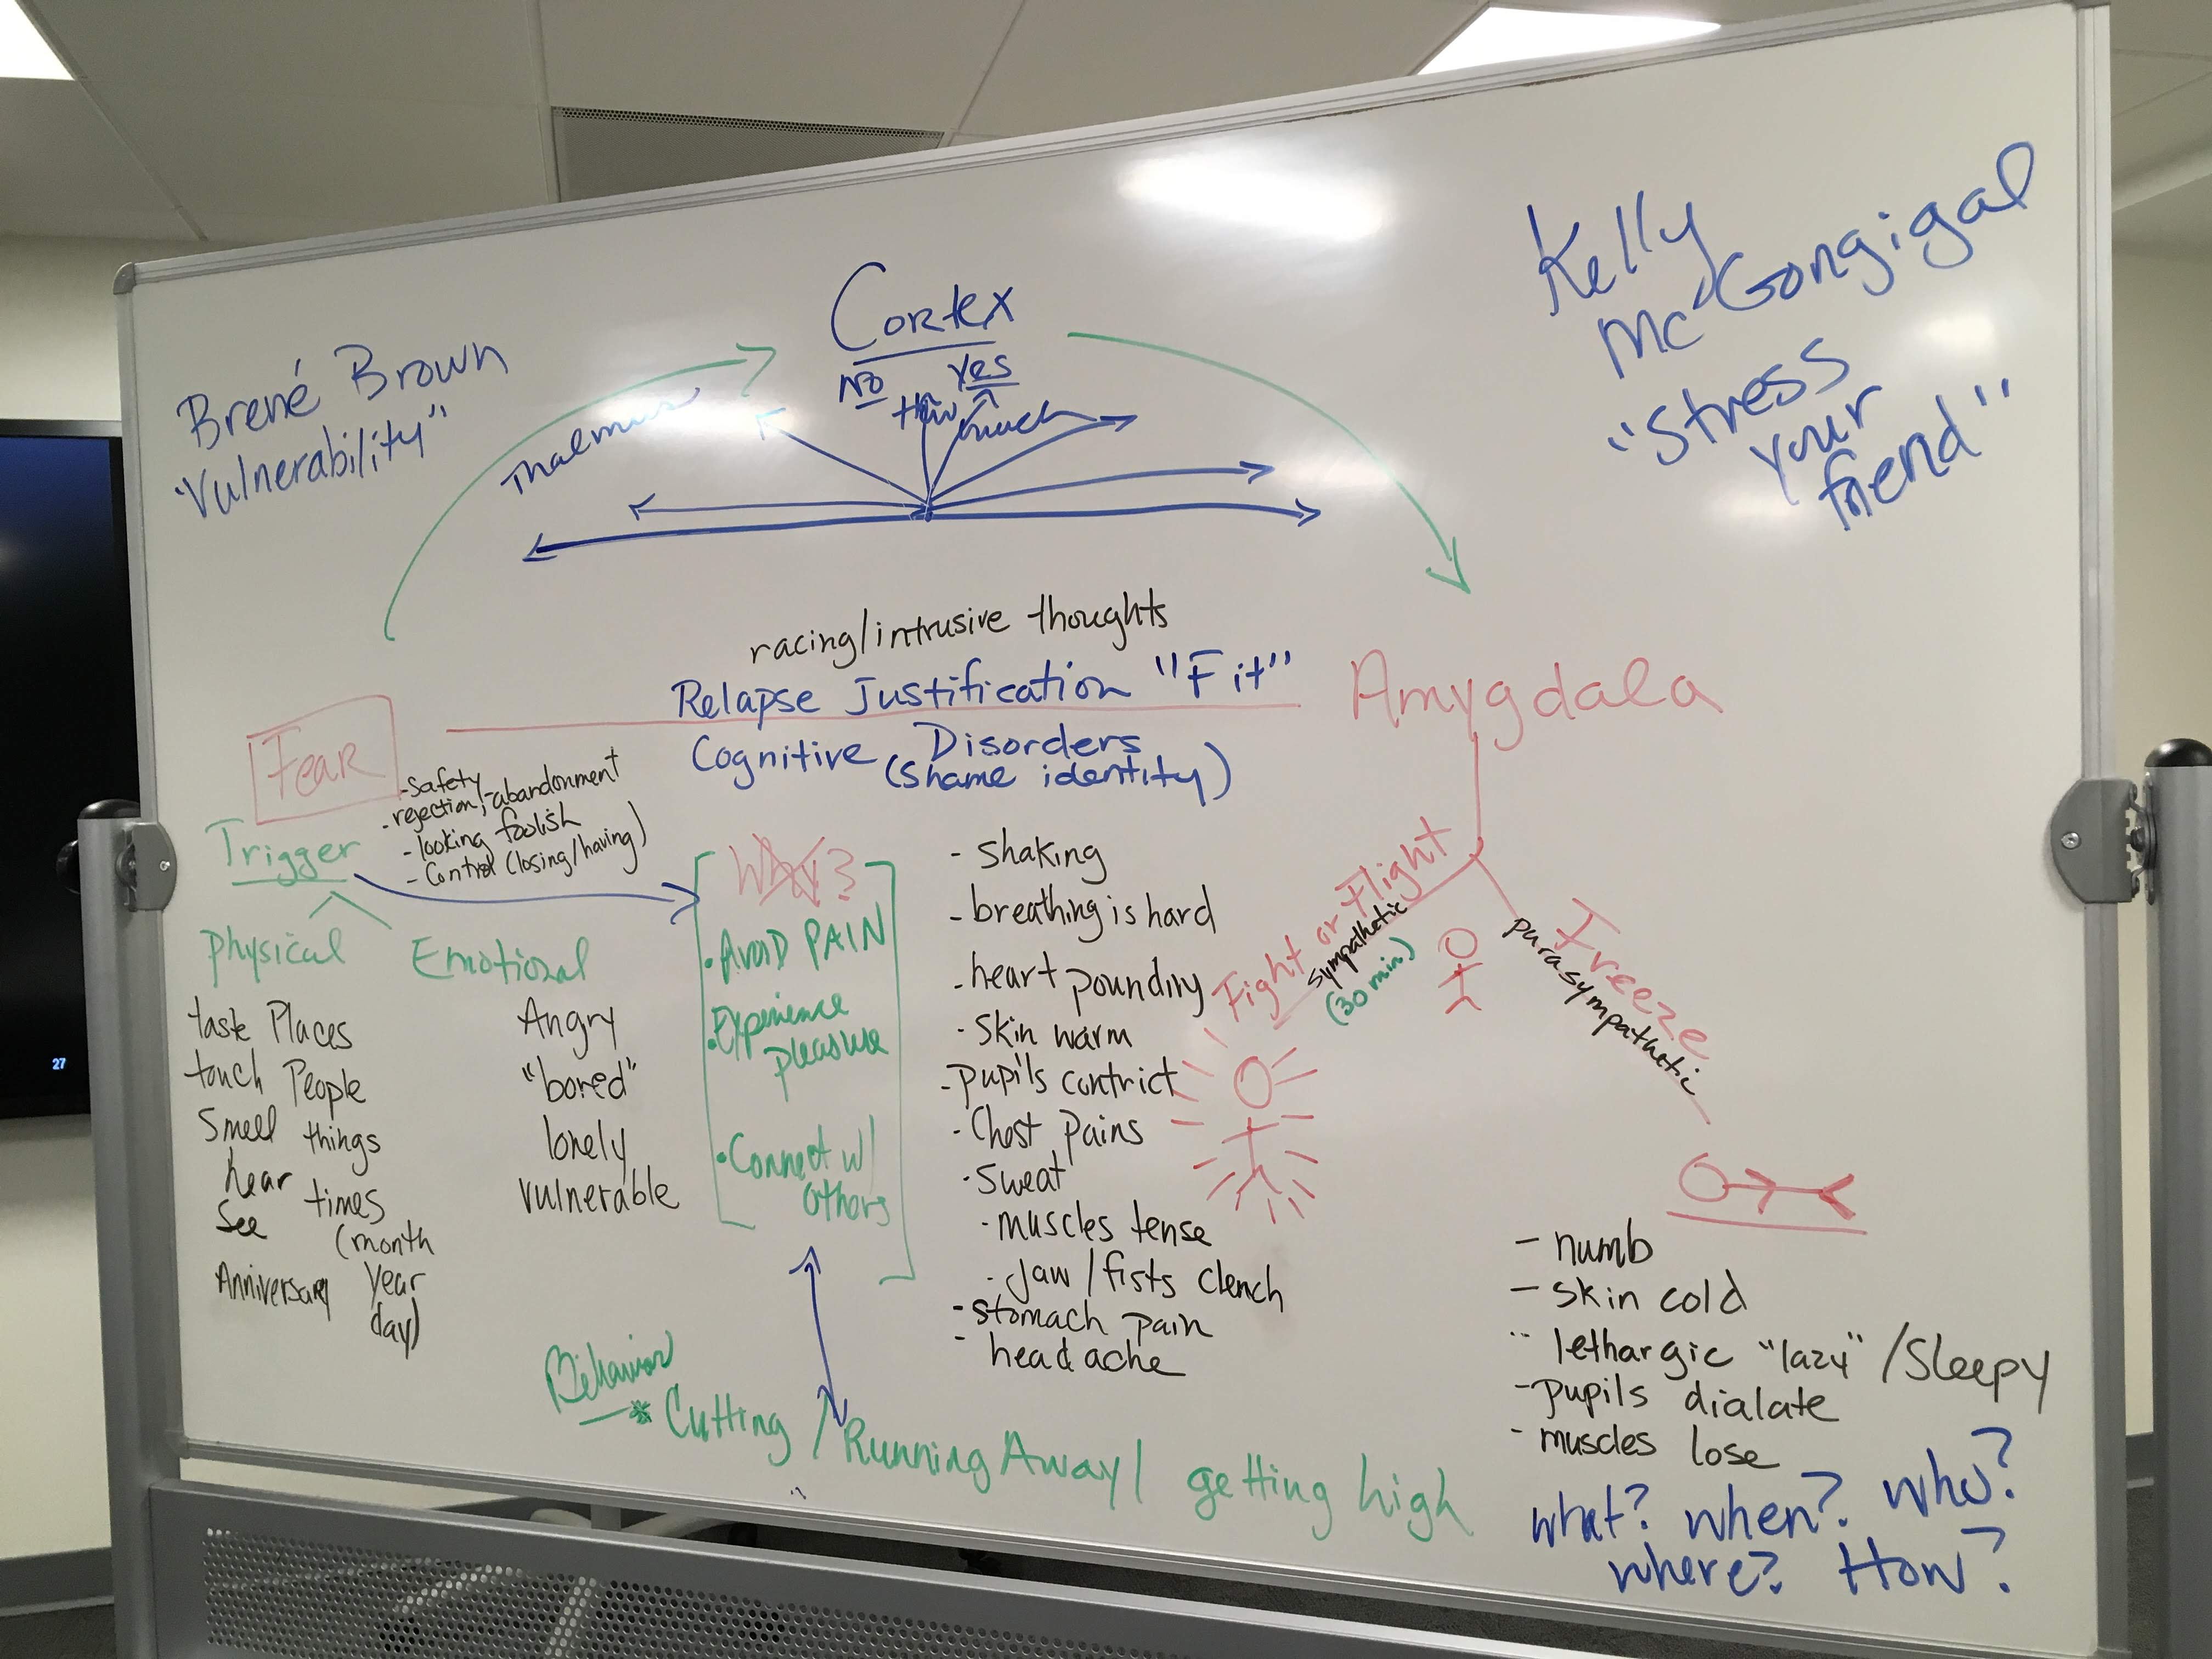 Brené Brown
"Vulnerability"
Cortex
No
Yes
How
much
Thalmus
Kelly
McGongigal
"Stress
your
friend"
racing/intrusive thoughts
Relapse Justification "Fit"
Cognitive Disorders
(shame identity)
Amygdala
Fear
- Safety
- rejection, - abandonment
- looking foolish
- Control (losing/having)
Trigger
Physical
Emotional
taste Places
touch People
Smell things
hear times
See (month
Anniversary Year
day)
Angry
"bored"
lonely
vulnerable
Why?
• Avoid PAIN
• Experience
pleasure
• Connect w/
others
- shaking
- breathing is hard
- heart pounding
- Skin warm
- pupils contrict
- Chest pains
- Sweat
- muscles tense
- Jaw / fists clench
- stomach pain
- head ache
Fight or Flight
sympathetic
(30 min)
Freeze
parasympathetic
- numb
- skin cold
- lethargic "lazy" / Sleepy
- pupils dialate
- muscles lose
Behavior
* Cutting / Running Away / getting high
what? when? who?
where? How?
27